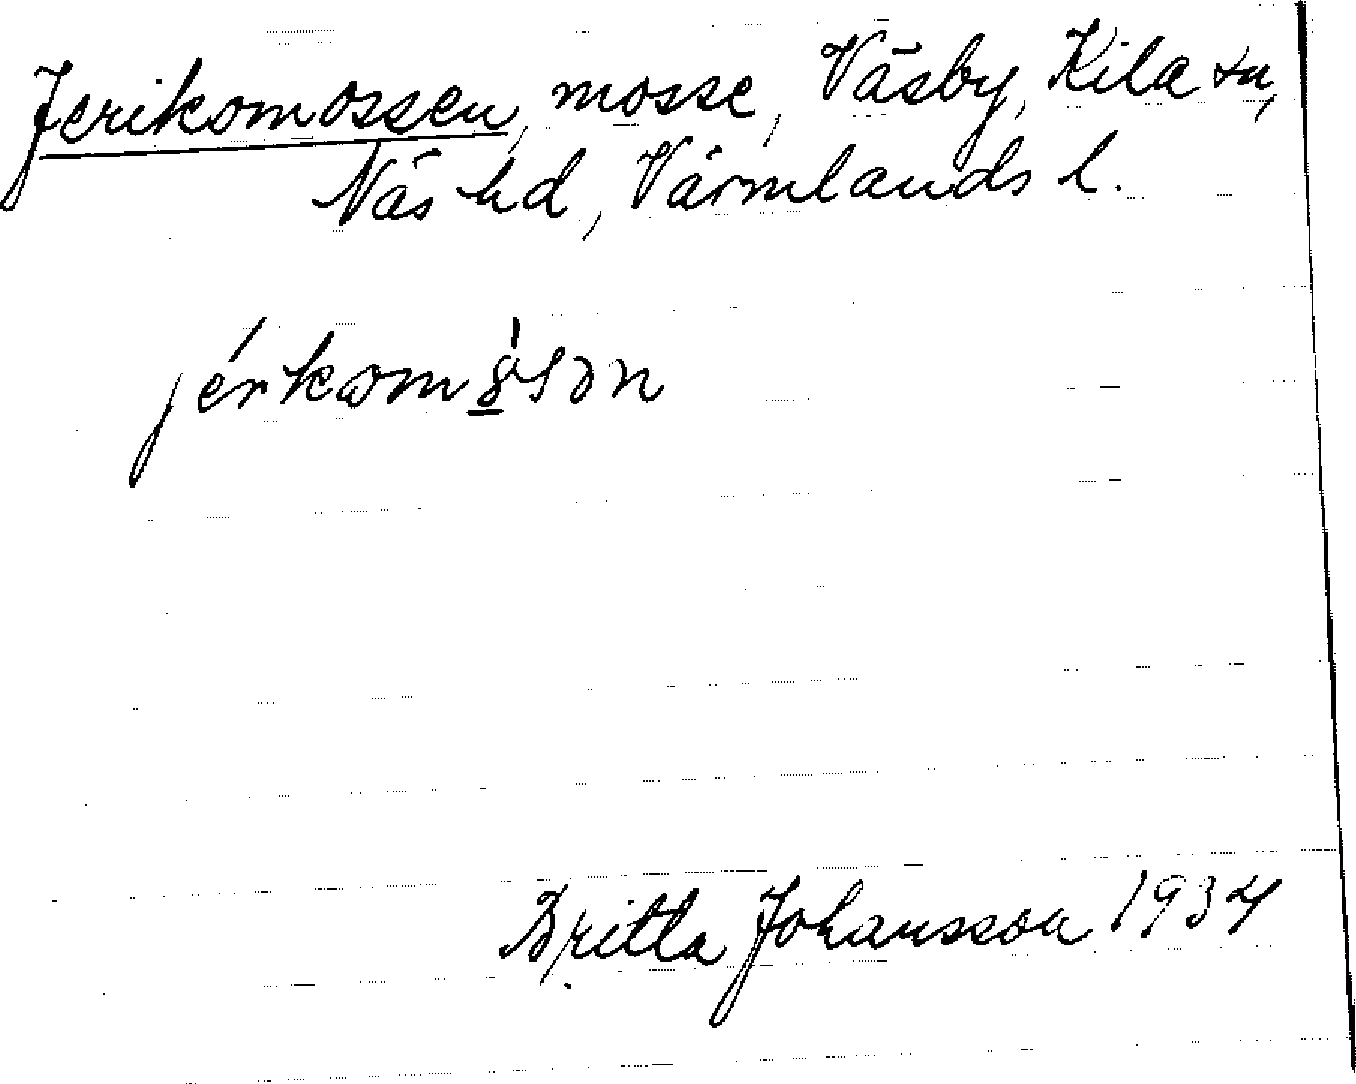 Jerikomossen, mosse, Väsby, Kila sn,
Näs hd, Värmlands l.
jérkomo̲̍sən
Britta Johansson 1934